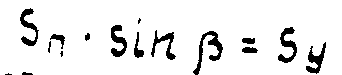 Sп · sin β = Sy